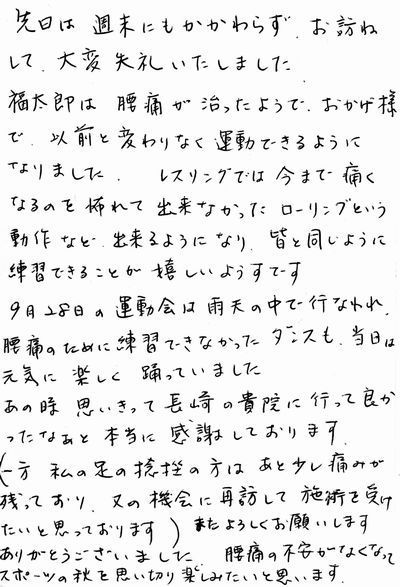 先日は 週末にもかかわらず、お訪ね
して、大変失礼いたしました
福太郎は 腰痛が治ったようで、おかげ様
で、以前と変わりなく運動できるように
なりました。 レスリングでは今まで痛く
なるのを怖れて出来なかったローリングという
動作なども出来るようになり、皆と同じように
練習できることが嬉しいようすです
9月28日の運動会は雨天の中で行なわれ、
腰痛のために練習できなかったダンスも、当日は
元気に楽しく踊っていました
あの時 思いきって長崎の貴院に行って良か
ったなぁと本当に感謝しております。
(一方 私の足の捻挫の方はあと少し痛みが
残っており、又の機会に再訪して施術を受け
たいと思っております) またよろしくお願いします
ありがとうございました 腰痛の不安がなくなって
スポーツの秋を思い切り楽しみたいと思います。